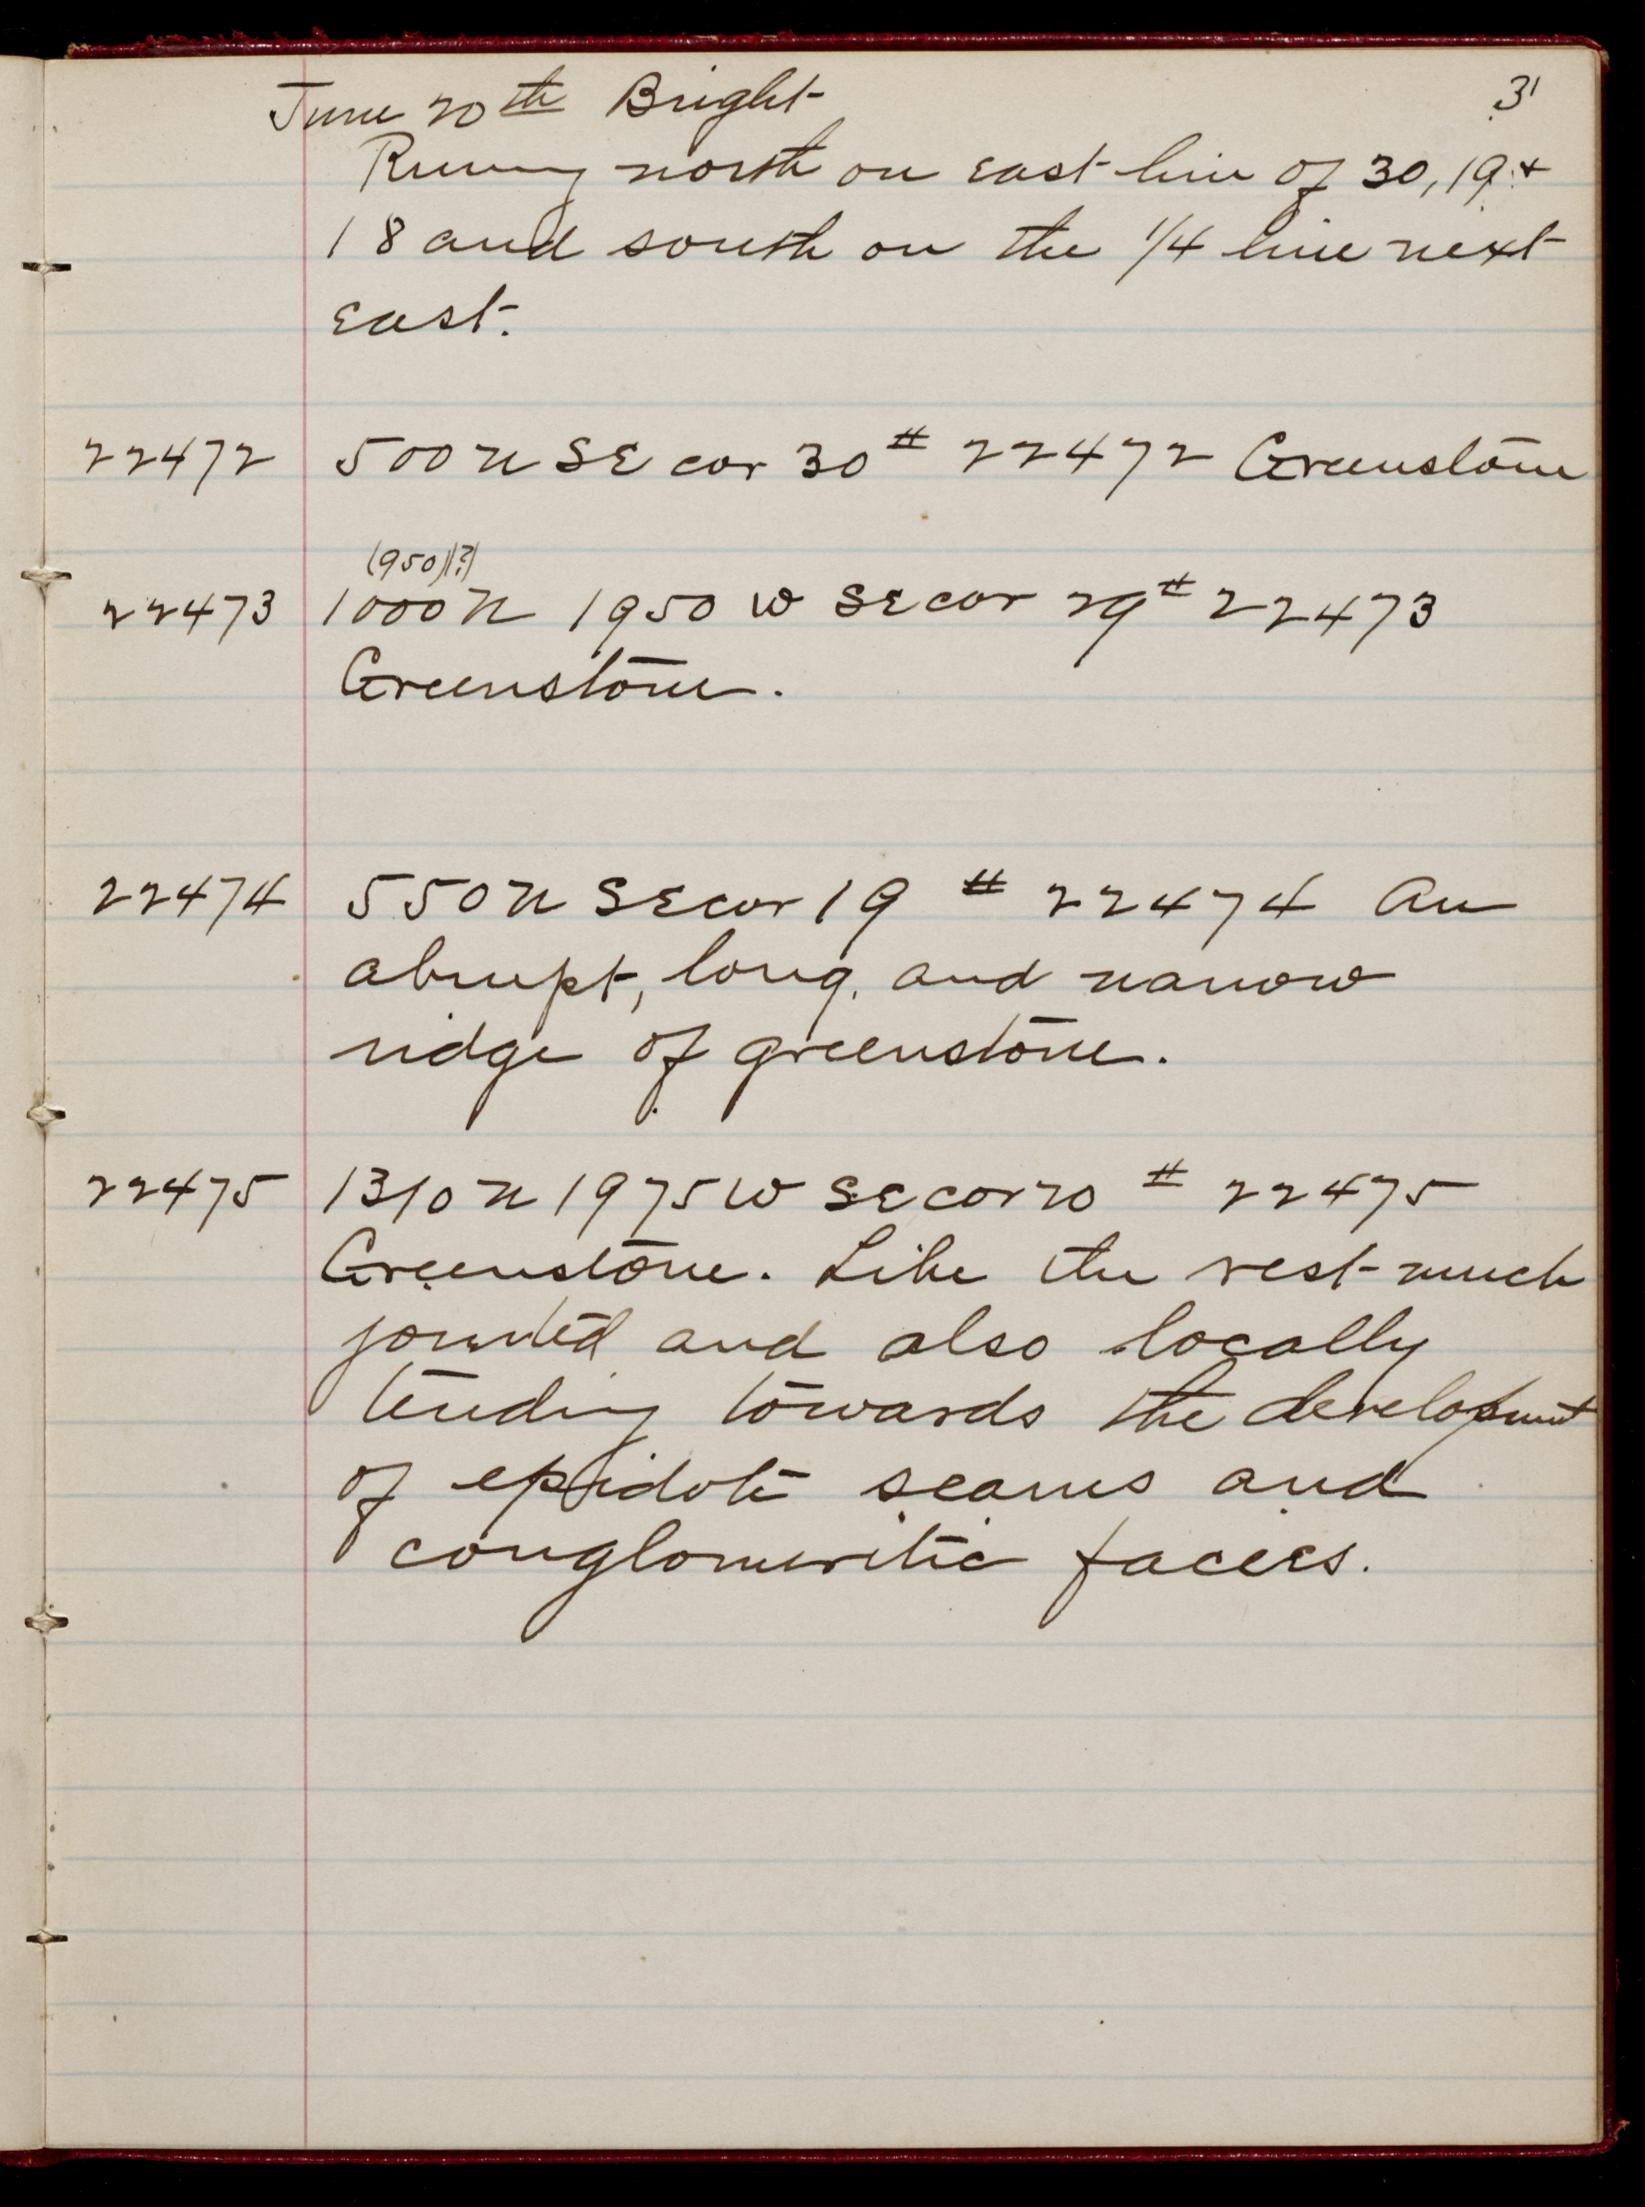 31
June 20th Bright
Running north on east line of 30, 19 +
18 and south on the 1/4 line next
east.
22472 500 N SE cor 30 # 22472 Greenstone
(950)(?)
22473 1000 N 1950 W SE cor 29 # 22473
Greenstone.
22474 550 N SE cor 19 # 22474 An
abrupt, long, and narrow
ridge of greenstone.
22475 1310 N 1975 W SE cor 20 # 22475
Greenstone. Like the rest much
jointed and also locally
tending towards the development
of epidote seams and
conglomeritic facies.